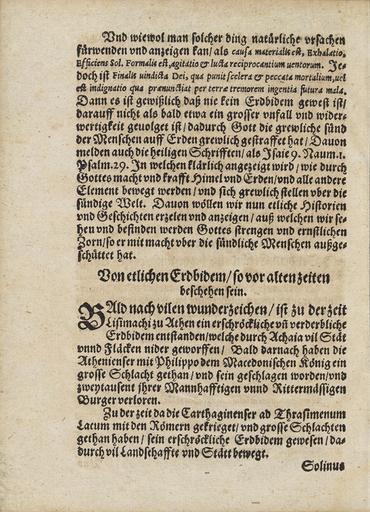 Vnd wiewol man solcher ding natürliche vrsachen
fürwenden vnd anzeigen kan/ als causa materialis est, Exhalatio,
Efficiens Sol. Formalis est, agitatio & lucta reciprocantium uentorum. Je-
doch ist Finalis uindicta Dei, qua punit scelera & peccata mortalium, uel
est indignatio qua prænunciat per terræ tremorem ingentia futura mala.
Dann es ist gewißlich daß nie kein Erdbidem gewest ist/
darauff nicht als bald etwa ein grosser vnfall vnd wider-
wertigkeit geuolget ist/ dadurch Gott die grewliche sünd
der Menschen auff Erden grewlich gestraffet hat/ Dauon
melden auch die heiligen Schrifften/ als Isaie 9. Naum. 1.
Psalm. 29. In welchen klärlich angezeigt wird/ wie durch
Gottes macht vnd krafft Himel vnd Erden/ vnd alle andere
Element bewegt werden/ vnd sich grewlich stellen vber die
sündige Welt. Dauon wöllen wir nun etliche Historien
vnd Geschichten erzelen vnd anzeigen/ auß welchen wir se-
hen vnd befinden werden Gottes strengen vnd ernstlichen
Zorn/ so er mit macht vber die sündliche Menschen außge-
schüttet hat.
Von etlichen Erdbidem/ so vor alten zeiten
beschehen sein.
BAld nach vilen wunderzeichen/ ist zu der zeit
Lisimachi zu Athen ein erschröckliche vñ verderbliche
Erdbidem entstanden/ welche durch Achaia vil Stät
vnnd Fläcken nider geworffen/ Bald darnach haben die
Athenienser mit Philippo dem Macedonischen König ein
grosse Schlacht gethan/ vnd sein geschlagen worden/ vnd
zweytausent jhrer Mannhafftigen vnnd Rittermässigen
Burger verloren.
Zu der zeit da die Carthaginenser ad Thrasimenum
Lacum mit den Römern gekrieget/ vnd grosse Schlachten
gethan haben/ sein erschröckliche Erdbidem gewesen/ da-
durch vil Landschaffte vnd Stätt bewegt.
Solinus